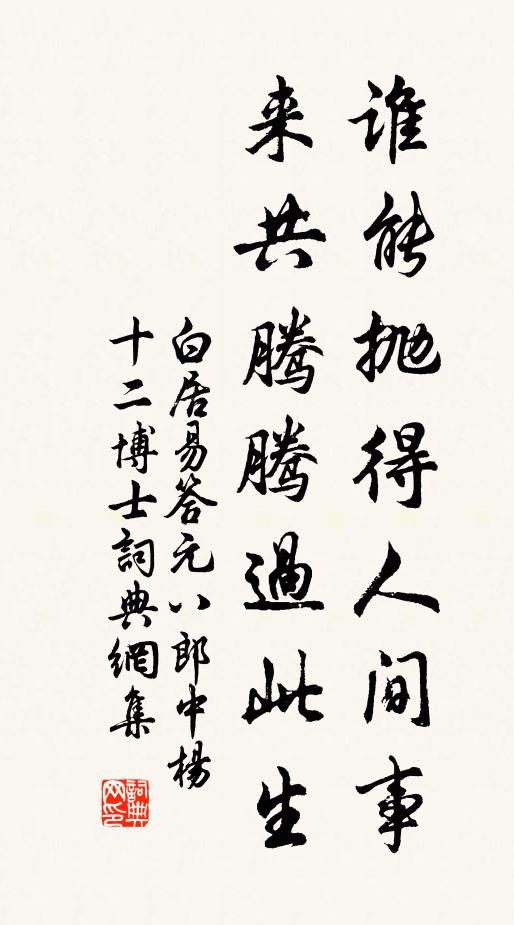 谁能抛得人间事
来共腾腾过此生
白居易答元八郎中楊
十二博士詞典網集
詞典
网印